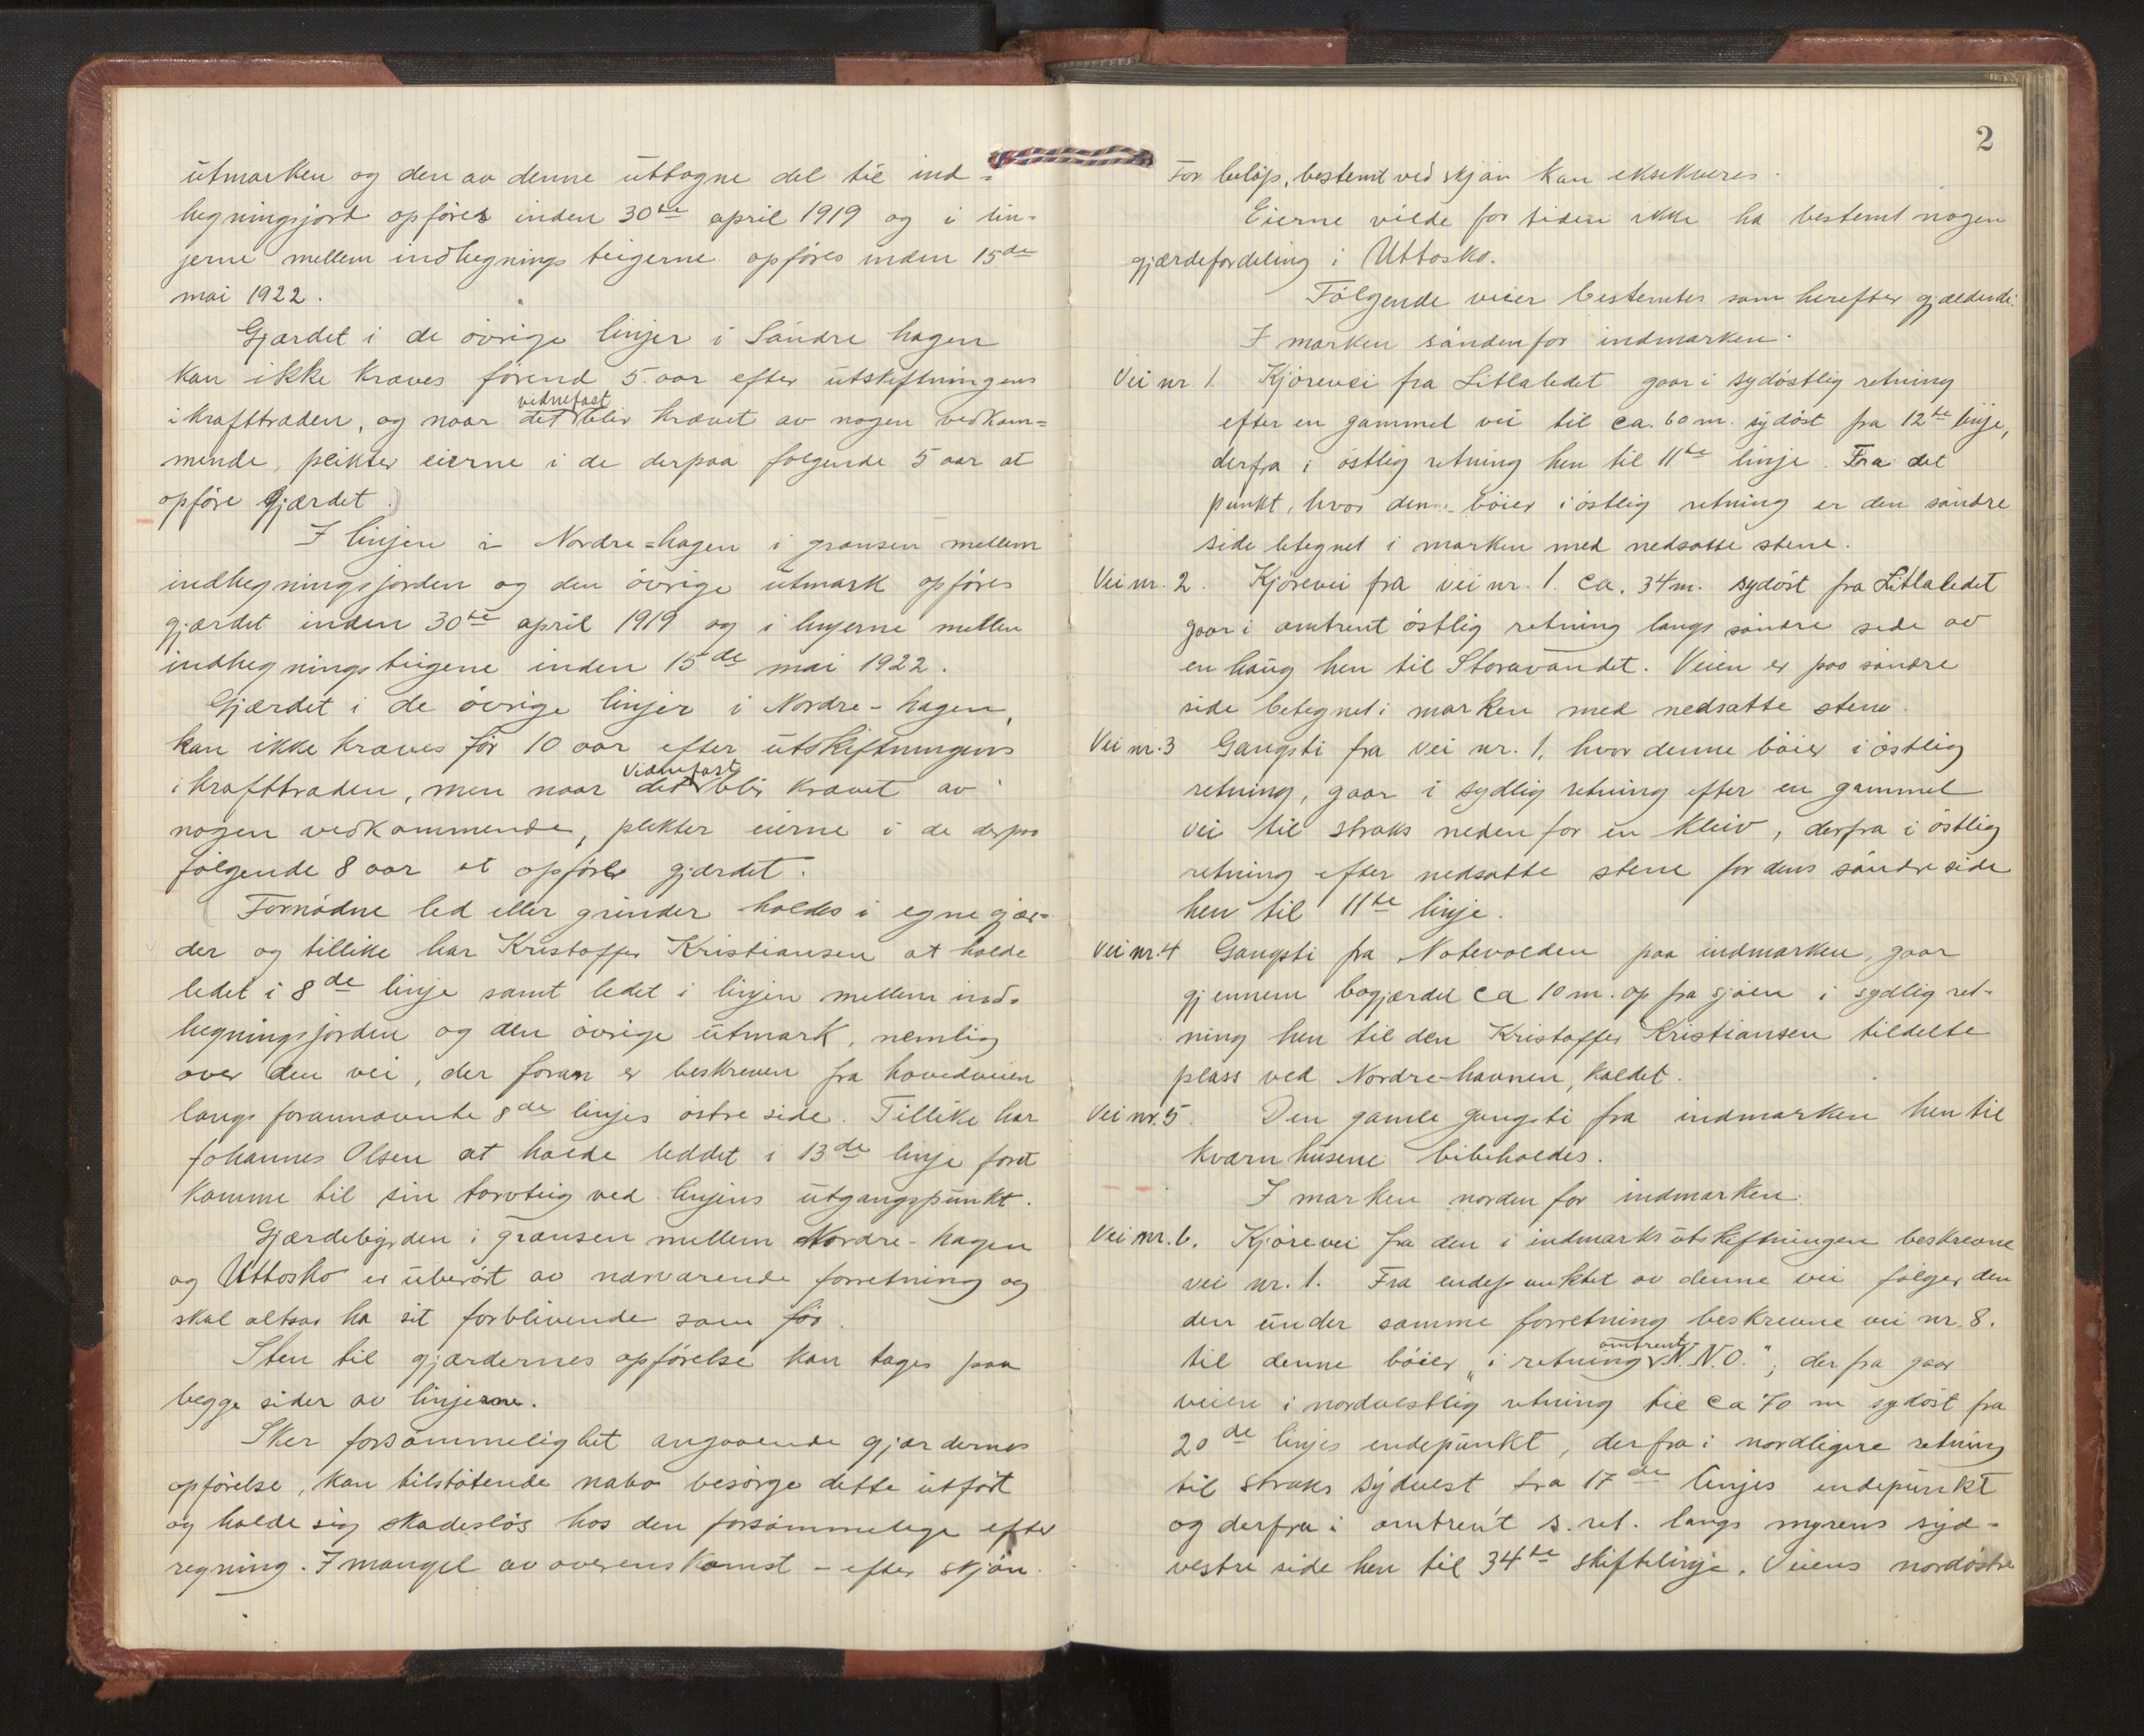 utmarken og den av denne uttagne del til ind-
hegningsjord opføres inden 30te april 1919 og i lin-
jerne mellem indhegningsteigerne opføres inden 15de
mai 1922.
Gjærdet i de øvrige linjer i Søndre hagen
kan ikke kræves førend 5 aar efter utskiftningens
vidnefast
ikrafttræden, og naar det blir krævet av nogen vedkom=
mende, plikter eierne i de derpaa følgende 5 aar at
opføre gjærdet.
I linjen i Nordre=hagen i grænsen mellem
indhegningsjorden og den øvrige utmark opføres
gjærdet inden 30te april 1919 og i linjerne mellem
indhegningsteigene inden 15de mai 1922.
Gjærdet i de øvrige linjer i Nordre-hagen,
kan ikke kræves før 10 aar efter utskiftningens
vidnefast
ikrafttræden, men naar det blir krævet av
nogen vedkommende, plikter eierne i de derpaa
følgende 8 aar at opføre gjærdet.
Fornødne led eller grinder holdes i egne gjær=
der og tillike har Kristoffer Kristiansen at holde
ledet i 8de linje samt ledet i linjen mellem ind=
hegningsjorden og den øvrige utmark, nemlig
over den vei, der foran er beskreven fra hovedveien
langs forannævnte 8de linjes østre side. Tillike har
Johannes Olsen at holde leddet i 13de linje for at
komme til sin torvteig ved linjens utgangspunkt.
Gjærdebyrden i grænsen mellem Nordre-hagen
og Uttosko er uberørt av nærværende forretning og
skal altsaa ha sit forblivende som før.
Sten til gjærdernes opførelse kan tages paa
begge sider av linjerne.
Sker forsømmelighet angaaende gjærdernes
opførelse, kan tilstøtende nabo besørge dette utført
og holde sig skadesløs hos den forsømmelige efter
regning. I mangel av overenskomst - efter skjøn.
2
For beløp, bestemt ved skjøn kan eksekveres.
Eierne vilde for tiden ikke ha bestemt nogen
gjærdefordeling i Uttosko.
Følgende veier bestemtes som herefter gjældende:
I marken søndenfor indmarken.
Vei nr 1. Kjørevei fra Litlaledet gaar i sydøstlig retning
efter en gammel vei til ca. 60 m. sydøst fra 12te linje,
derfra i østlig retning hen til 11te linje. Fra det
punkt, hvor den bøier i østlig retning er den søndre
side betegnet i marken med nedsatte stene.
Vei nr. 2. Kjørevei fra vei nr. 1. ca. 34 m. sydøst fra Litlaledet
gaar i omtrent østlig retning langs søndre side av
en haug hen til Storavandet. Veien er paa søndre
side betegnet i marken med nedsatte stene.
Vei nr. 3 Gangsti fra vei nr. 1, hvor denne bøier i østlig
retning, gaar i sydlig retning efter en gammel
vei til straks nedenfor en kleiv, derfra i østlig
retning efter nedsatte stene for dens søndre side
hen til 11te linje.
Vei nr. 4 Gangsti fra Notevolden paa indmarken, gaar
gjennem bøgjærdet ca 10 m. op fra sjøen i sydlig ret-
ning hen til den Kristoffer Kristiansen tildelte
plass ved Nordre-havnen, kaldet.
Vei nr. 5. Den gamle gangsti fra indmarken hen til
kværnhusene bibeholdes.
I marken norden for indmarken.
Vei nr. 6. Kjørevei fra den i indmarksutskiftningen beskrevne
vei nr. 1. Fra endepunktet av denne vei følger den
den under samme forretning beskrevne vei nr. 8.
omtrent
til denne bøier "i retning N.N.O.", derfra gaar
veien i nordvestlig retning til ca 70 m sydøst fra
20de linjes endepunkt, derfra i nordligere retning
til straks sydvest fra 17de linjes endepunkt
og derfra i omtrent s. ret. langs myrens syd-
vestre side hen til 34te skiftelinje. Veiens nordøstre